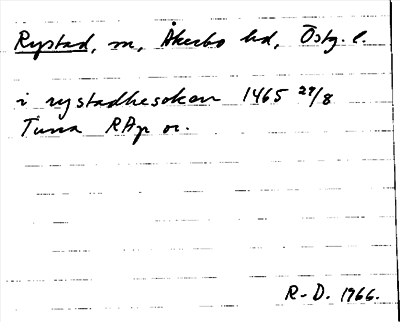 Rystad, sn, Åkerbo hd, Östg. l.
i rystadhesokan 1465 29/8
Tuna RAp or.
R-D. 1966.